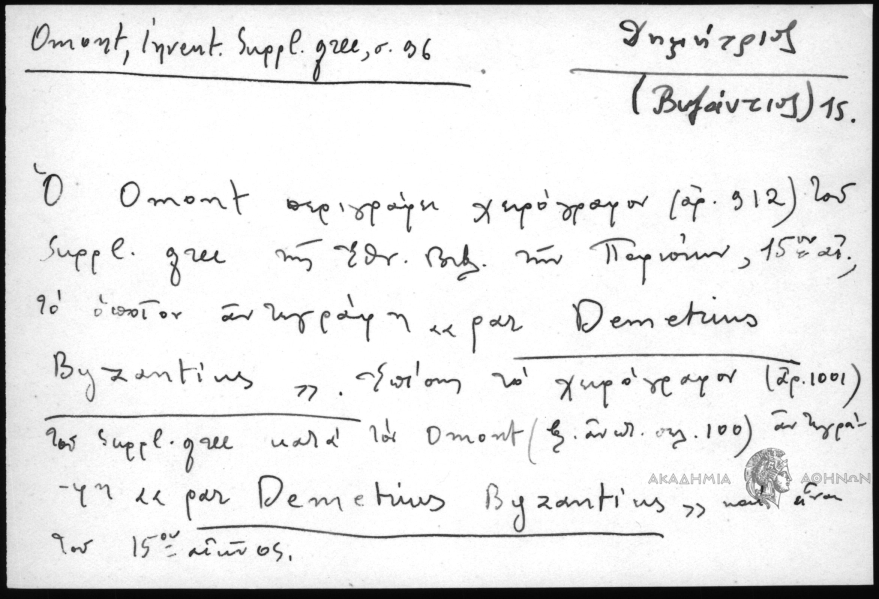 Omont, Invent. Suppl. grec, σ. 96
Δημήτριος
(Βυζάντιος) 15.
Ὁ Omont περιγράφει χειρόγραφον (ἀρ. 912) τοῦ
Suppl. grec τῆς Ἐθν. Βιβλ. τῶν Παρισίων, 15ου αἰ.,
τὸ ὁποῖον ἀντεγράφη «par Demetrius
Byzantius». Ἐπίσης τὸ χειρόγραφον (ἀρ. 1001)
τοῦ Suppl. grec κατὰ τὸν Omont (ἔ. ἀνωτ. σελ. 100) ἀντεγρά-
-φη «par Demetrius Byzantius» καὶ εἶναι
τοῦ 15ου αἰῶνος.
ΑΚΑΔΗΜΙΑ ΑΘΗΝΩΝ